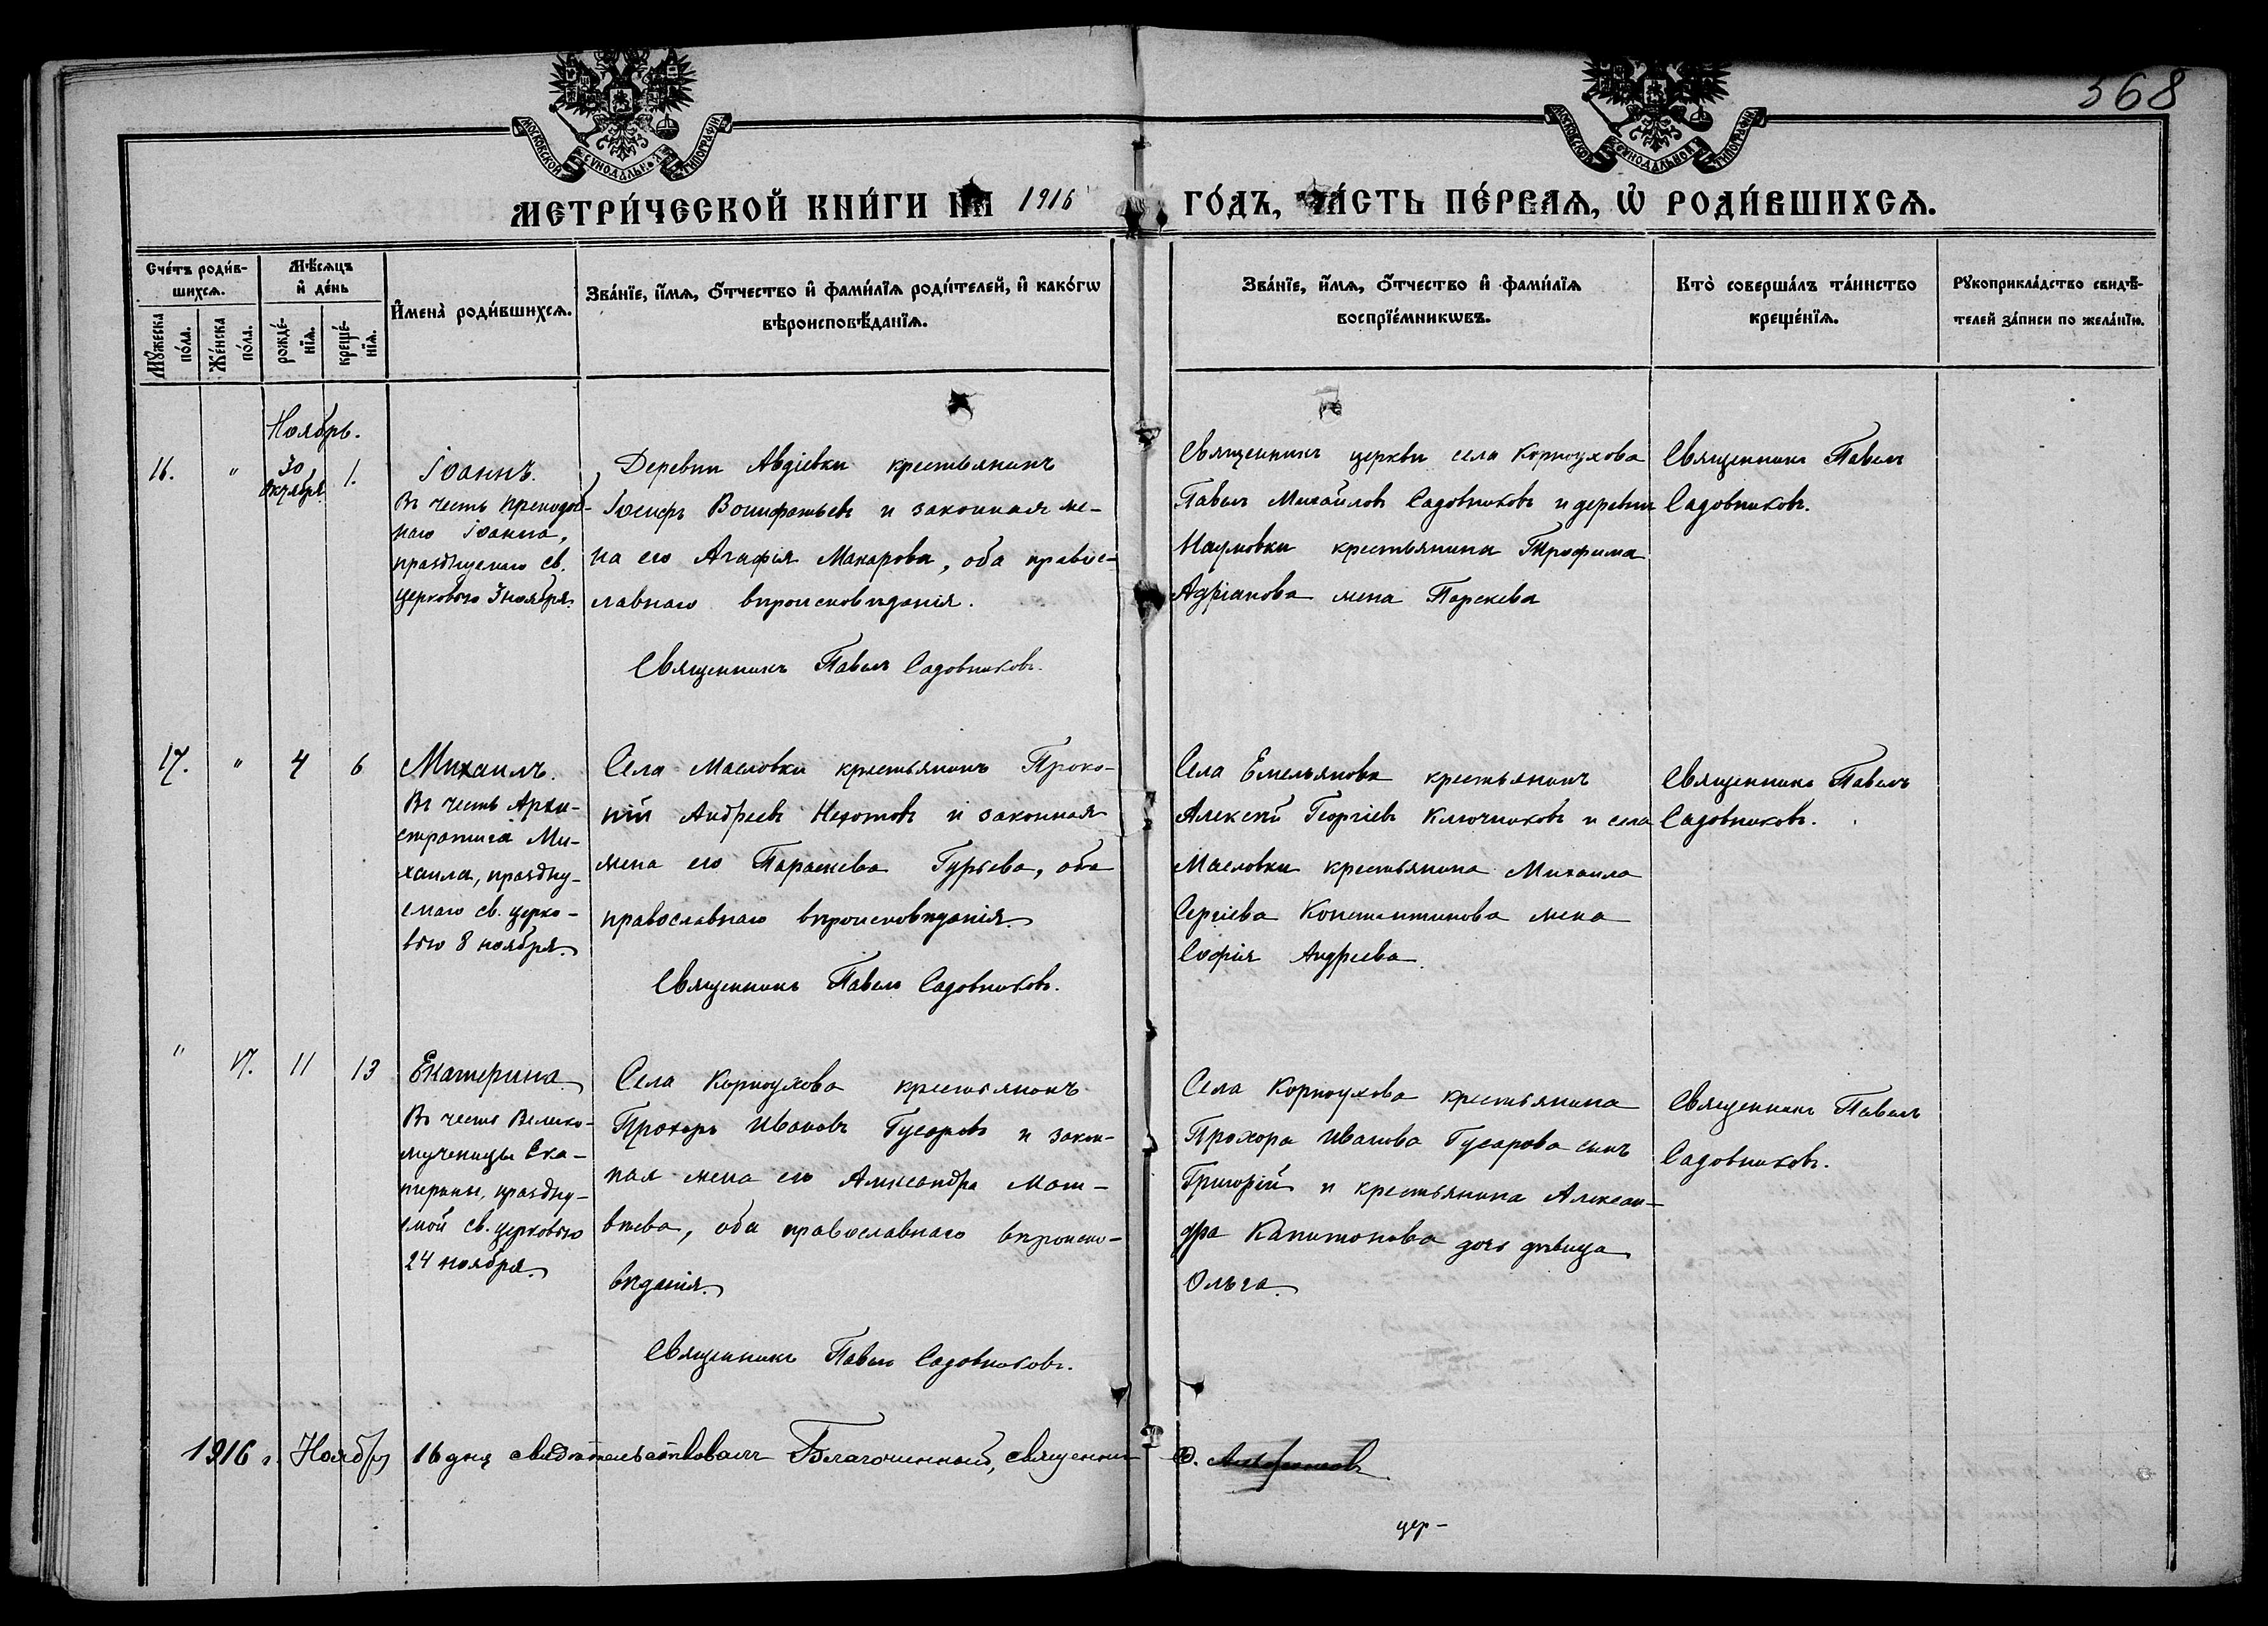 368
МОСКОВСКОЙ СѴНОДАЛЬНОЙ ТИПОГРАФІИ
МОСКОВСКОЙ СѴНОДАЛЬНОЙ ТИПОГРАФІИ
МЕТРИ́ЧЕСКОЙ КНИ́ГИ НА 1916 ГО́ДЪ, ЧА́СТЬ ПЕ́РВАѦ, Ѡ҆ РОДИ́ВШИХСѦ.
Сче́тъ роди́в-
шихсѧ.
Мꙋ́жеска
по́ла.
Же́нска
по́ла.
Мѣ́сѧцъ
и҆ де́нь
рожде́-
нїѧ.
креще́-
нїѧ.
И҆мена̀ роди́вшихсѧ.
Зва́нїе, и҆́мѧ, ѻ҆́тчество и҆ фами́лїѧ роди́телей, и҆ како́гѡ
вѣроисповѣ́данїѧ.
Зва́нїе, и҆́мѧ, ѻ҆́тчество и҆ фами́лїѧ
воспрїе́мникѡвъ.
Кто̀ соверша́лъ та́инство
креще́нїѧ.
Рꙋкоприкла́дство свидѣ́-
телей за́писи по жела́нїю.
Ноябрь.
16. " 30 Октября 1.
Іоаннъ.
Въ честь преподоб-
наго Іоанна,
празднуемаго св.
церковью 3 ноября.
Деревни Авдіевки крестьянинъ
Іосифъ Вонифатьевъ и законная же-
на его Агафія Макарова, оба правос-
лавнаго вѣроисповѣданія.
Священникъ Павелъ Садовниковъ.
Священникъ церкви села Корноухова
Павелъ Михайловъ Садовниковъ и деревни
Наумовки крестьянина Трофима
Адріанова жена Парскева
Священникъ Павелъ
Садовниковъ.
17. " 4 6
Михаилъ.
Въ честь Архи-
стратига Ми-
хаила, праздну-
емаго св. церко-
вью 8 ноября.
Села Масловки крестьянинъ Проко-
пій Андреевъ и законная
жена его Параскева Гурьева, оба
православнаго вѣроисповѣданія.
Священникъ Павелъ Садовниковъ.
Села Емельянова крестьянинъ
Алексѣй Георгіевъ Ключниковъ и села
Масловки крестьянина Михаила
Сергіева Константинова жена
Софія Андреева.
Священникъ Павелъ
Садовниковъ.
" 17. 11 13
Екатерина.
Въ честь Велико-
мученицы Ека-
терины, праздну-
емой св. церковью
24 ноября.
Села Корноухова крестьянинъ
Прохоръ Ивановъ Гусаровъ и закон-
ная жена его Александра Мат-
вѣева, оба православнаго вѣроиспо-
вѣданія.
Священникъ Павелъ Садовниковъ.
Села Корноухова крестьянина
Прохора Иванова Гусарова сынъ
Григорій и крестьянина Алексан-
дра Капитонова дочь дѣвица
Ольга.
Священникъ Павелъ
Садовниковъ.
1916 г. Ноября 16 дня свидѣтельствовалъ Благочинный, священникъ
цер-